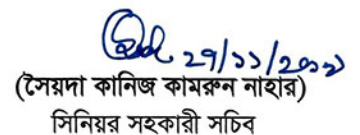 ২৭/১১/২০১৯
(সৈয়দা কানিজ কামরুন নাহার)
সিনিয়র সহকারী সচিব